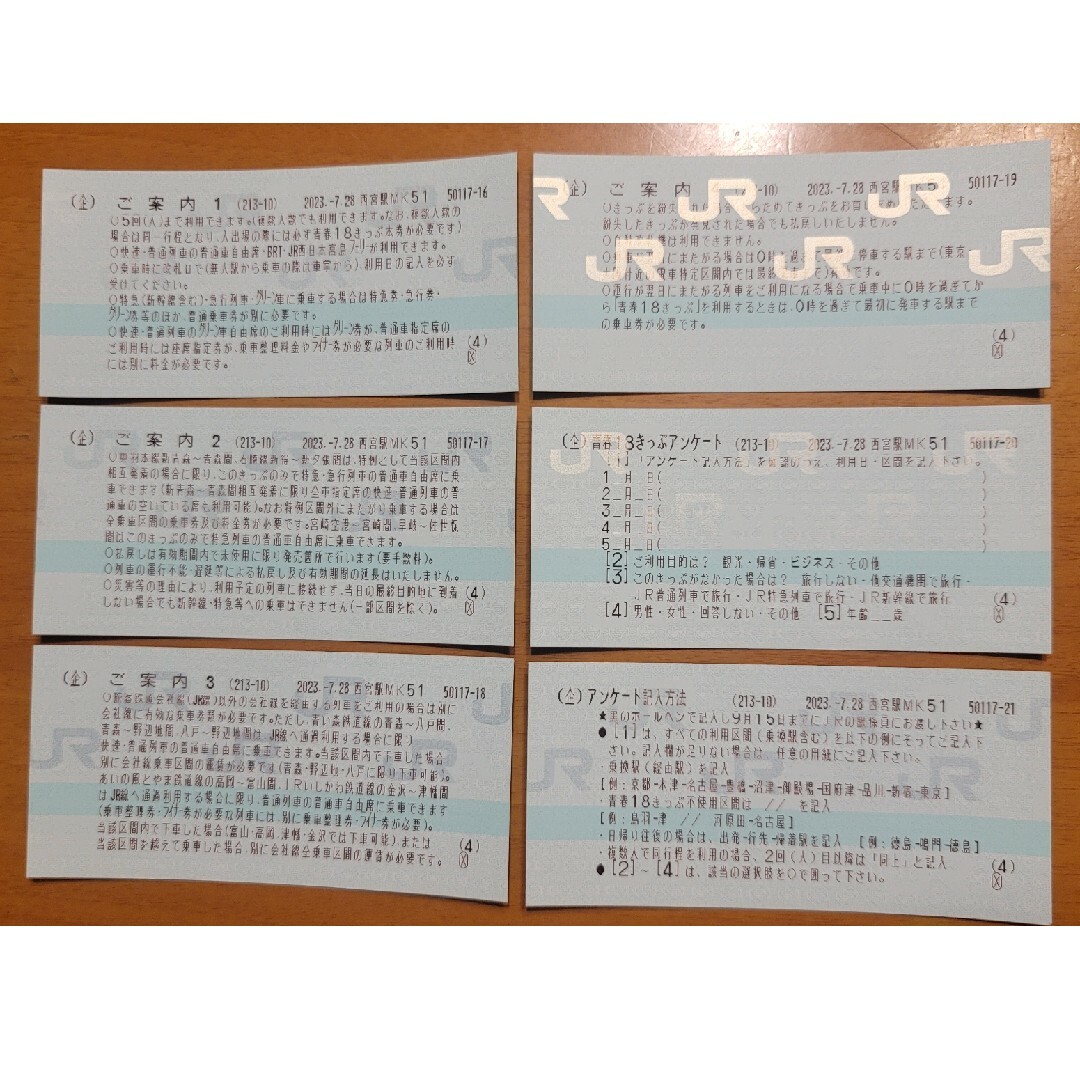 (企) ご案内1 (213-10) 2023.-7.28 西宮駅MK51 50117-16
○5回(人)まで利用できます。(複数人数でも利用できます。なお、複数人数の
場合は同一行程となり、入出場の際には必ず青春18きっぷ本券が必要です)
○快速・普通列車の普通車自由席・BRT・JR西日本宮島フェリーが利用できます。
○乗車時に改札口で(無人駅から乗車の際は車掌から)、利用日の記入を必ず
受けてください。
○特急(新幹線含む)・急行列車・グリーン車に乗車する場合は特急券・急行券・
グリーン券等のほか、普通乗車券が別に必要です。
○快速・普通列車のグリーン車自由席のご利用時にはグリーン券が、普通車指定席の
ご利用時には座席指定券が、乗車整理料金やライナー券が必要な列車のご利用時
には別に料金が必要です。
(4)
(企) ご案内2 (213-10) 2023.-7.28 西宮駅MK51 50117-17
○奥羽本線新青森~青森間、石勝線新得~新夕張間は、特例として当該区間内
相互発着の場合に限り、このきっぷのみで特急・急行列車の普通車自由席に乗
車できます(新青森~青森間相互発着に限り全車指定席の快速・普通列車の普
通車の空いている席も利用可能)。なお特例区間外にまたがり乗車する場合は
全乗車区間の乗車券及び料金券が必要です。宮崎空港~宮崎間、早岐~佐世保
間はこのきっぷのみで特急列車の普通車自由席に乗車できます。
○払戻しは有効期間内で未使用に限り発売箇所で行います(要手数料)。
○列車の運行不能・遅延等による払戻し及び有効期間の延長はいたしません。
○災害等の理由により、利用予定の列車に接続せず、当日の最終目的地に到着
しない場合でも新幹線・特急等への乗車はできません(一部区間を除く)。
(4)
(企) ご案内3 (213-10) 2023.-7.28 西宮駅MK51 50117-18
○旅客鉄道会社線(JR線)以外の会社線を経由する列車をご利用の場合は別に
会社線に有効な乗車券類が必要です。ただし、青い森鉄道線の青森~八戸間、
青森~野辺地間、八戸~野辺地間は、JR線へ通過利用する場合に限り、
快速・普通列車の普通車自由席に乗車できます。当該区間内で下車した場合、
別に会社線乗車区間の運賃が必要です(青森・野辺地・八戸に限り下車可能)。
あいの風とやま鉄道線の高岡~富山間、IRいしかわ鉄道線の金沢~津幡間
はJR線へ通過利用する場合に限り、普通列車の普通車自由席に乗車できます
(乗車整理券・ライナー券が必要な列車には、別に乗車整理券・ライナー券が必要)。
当該区間内で下車した場合(富山・高岡、津幡・金沢では下車可能)または
当該区間を越えて乗車した場合、別に会社線全乗車区間の運賃が必要です。
(4)
(企) ご案内 2023.-7.28 西宮駅MK5 50117-19
○きっぷを紛失
紛失したきっぷが発見された場合でも払戻しいたしません。
は利用できません。
○運行が翌日にまたがる列車をご利用になる場合で乗車中に0時を過ぎてか
ら「青春18きっぷ」を利用するときは、0時を過ぎて最初に発車する駅まで
の乗車券が必要です。
(4)
(企)青春18きっぷアンケート (213-10) 2023.-7.28 西宮駅MK51 50117-20
[1]「アンケート記入方法」を確認のうえ、利用日・区間を記入下さい。
1_月_日( )
2_月_日( )
3_月_日( )
4_月_日( )
5_月_日( )
[2]ご利用目的は? 観光・帰省・ビジネス・その他
[3]このきっぷがなかった場合は? 旅行しない・他交通機関で旅行・
JR普通列車で旅行・JR特急列車で旅行・JR新幹線で旅行
[4]男性・女性・回答しない・その他 [5]年齢__歳
(4)
(企)アンケート記入方法 (213-10) 2023.-7.28 西宮駅MK51 50117-21
★黒のボールペンで記入し9月15日までにJRの駅係員にお渡し下さい★
●[1]は、すべての利用区間(乗換駅含む)を以下の例にそってご記入下
さい。記入欄が足りない場合は、任意の用紙にご記入下さい。
・乗換駅(経由駅)を記入
[例:京都-木津-名古屋-豊橋-沼津-御殿場-国府津-品川-新宿-東京]
・青春18きっぷ不使用区間は // を記入
[例:鳥羽-津 // 河原田-名古屋]
・日帰り往復の場合は、出発-行先-帰着駅を記入 [例:徳島-鳴門-徳島]
・複数人で同行程を利用の場合、2回(人)目以降は「同上」と記入
●[2]~[4]は、該当の選択肢を○で囲って下さい。
(4)